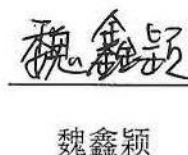 魏鑫颖
魏鑫颖